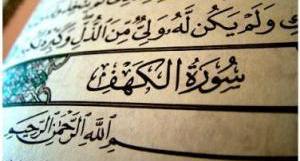 وَلَمْ يَكُن لَّهُۥ وَلِىٌّ مِّنَ ٱلذُّلِّ وَكَبِّرْهُ
سُورَةُ الْكَهْفِ
ٱللَّهِ ٱلرَّحْمَٰنِ ٱلرَّحِيمِ